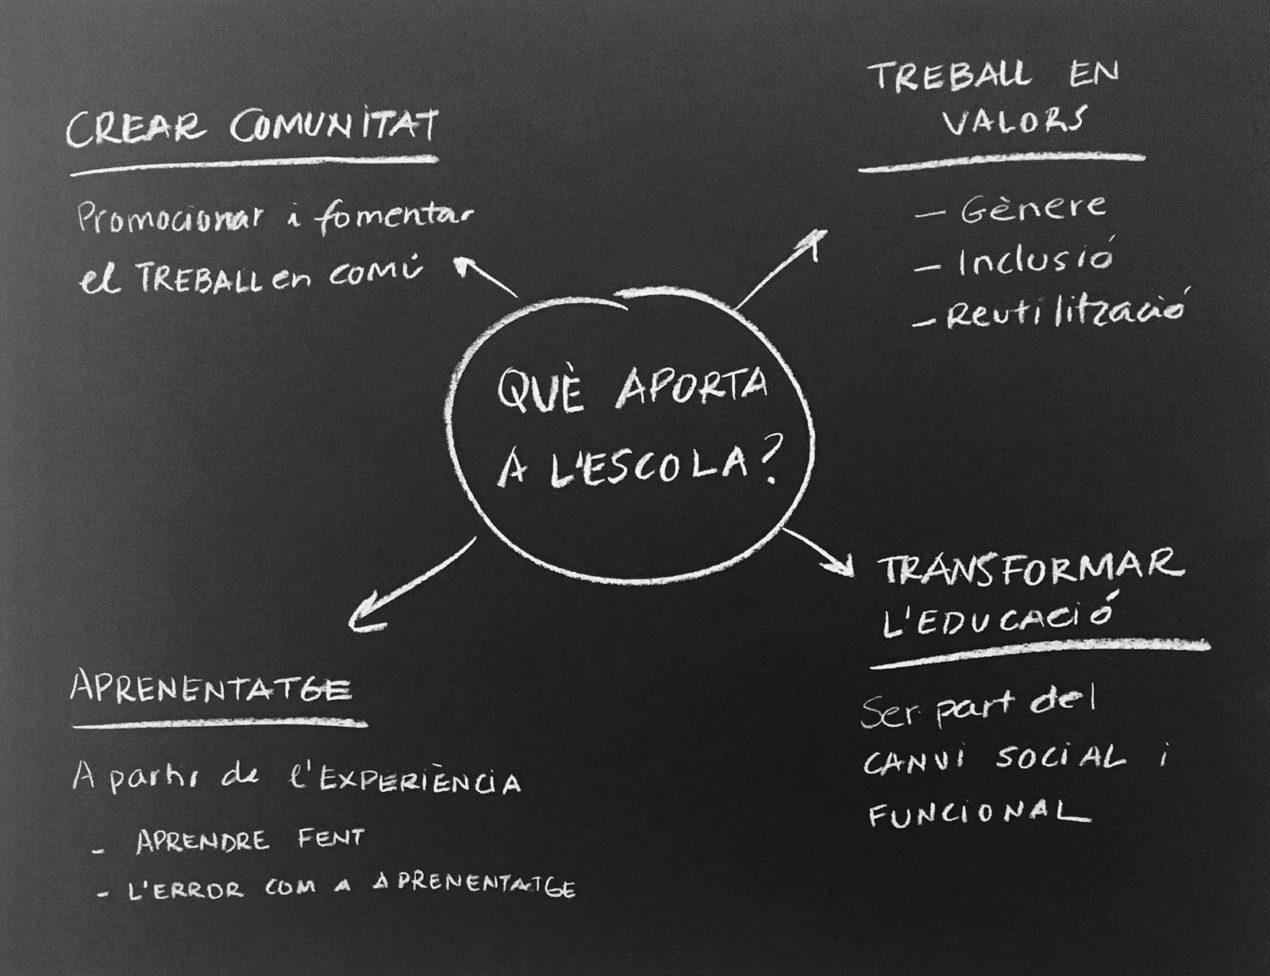 CREAR COMUNITAT
Promocionar i fomentar
el TREBALL en COMÚ
TREBALL EN
VALORS
- Gènere
- Inclusió
- Reutilització
QUÈ APORTA
A L'ESCOLA?
APRENENTATGE
A partir de l'EXPERIÈNCIA
- APRENDRE FENT
- L'ERROR COM A APRENENTATGE
TRANSFORMAR
L'EDUCACIÓ
Ser part del
CANVI SOCIAL i
FUNCIONAL